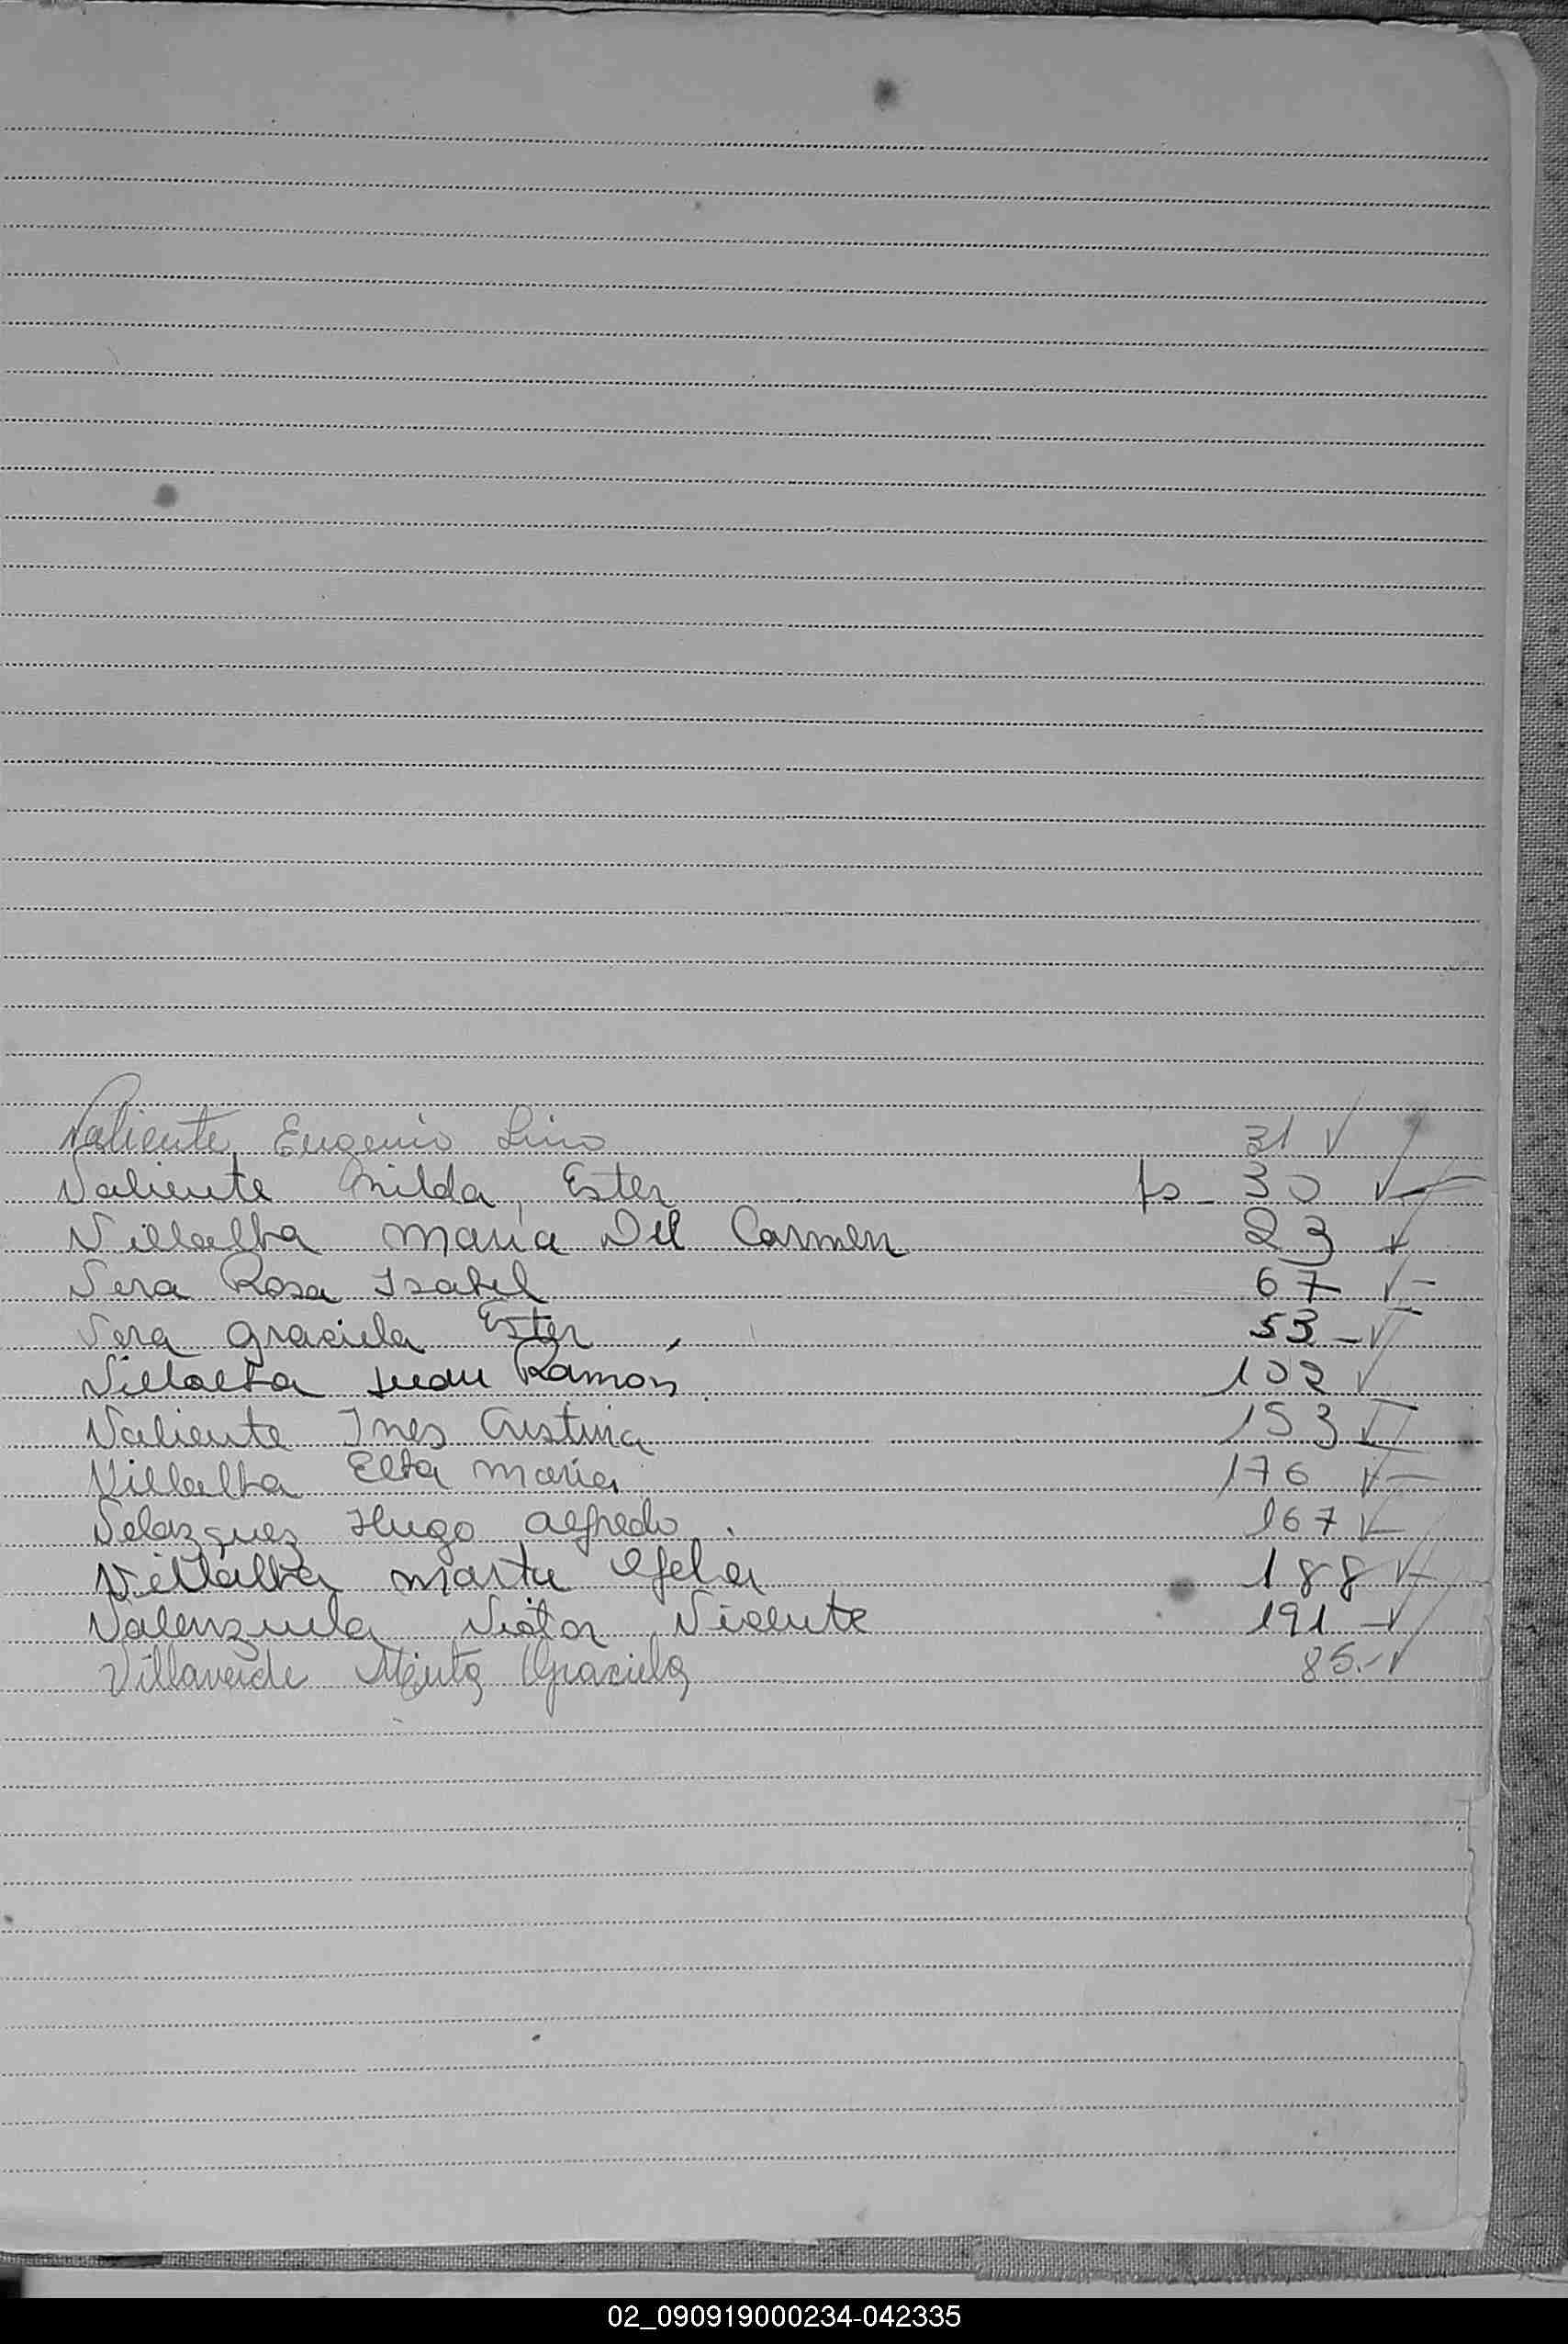 Valiente, Eugenio Lino 31 ✓
Valiente Nilda, Ester fs - 30 ✓
Villalba Maria Del Carmen 23 ✓
Vera Rosa Isabel 67 ✓ -
Vera Graciela Ester 53 - ✓
Villalba Juan Ramon 102 ✓
Valiente Ines Cristina 153 ✓
Villalba Elba Maria 176 ✓
Velazquez Hugo Alfredo. 167 ✓
Villalba Marta 188 ✓
Valenzuela Victor Vicente 191 - ✓
Villaverde Graciela 85.- ✓
02_090919000234-042335